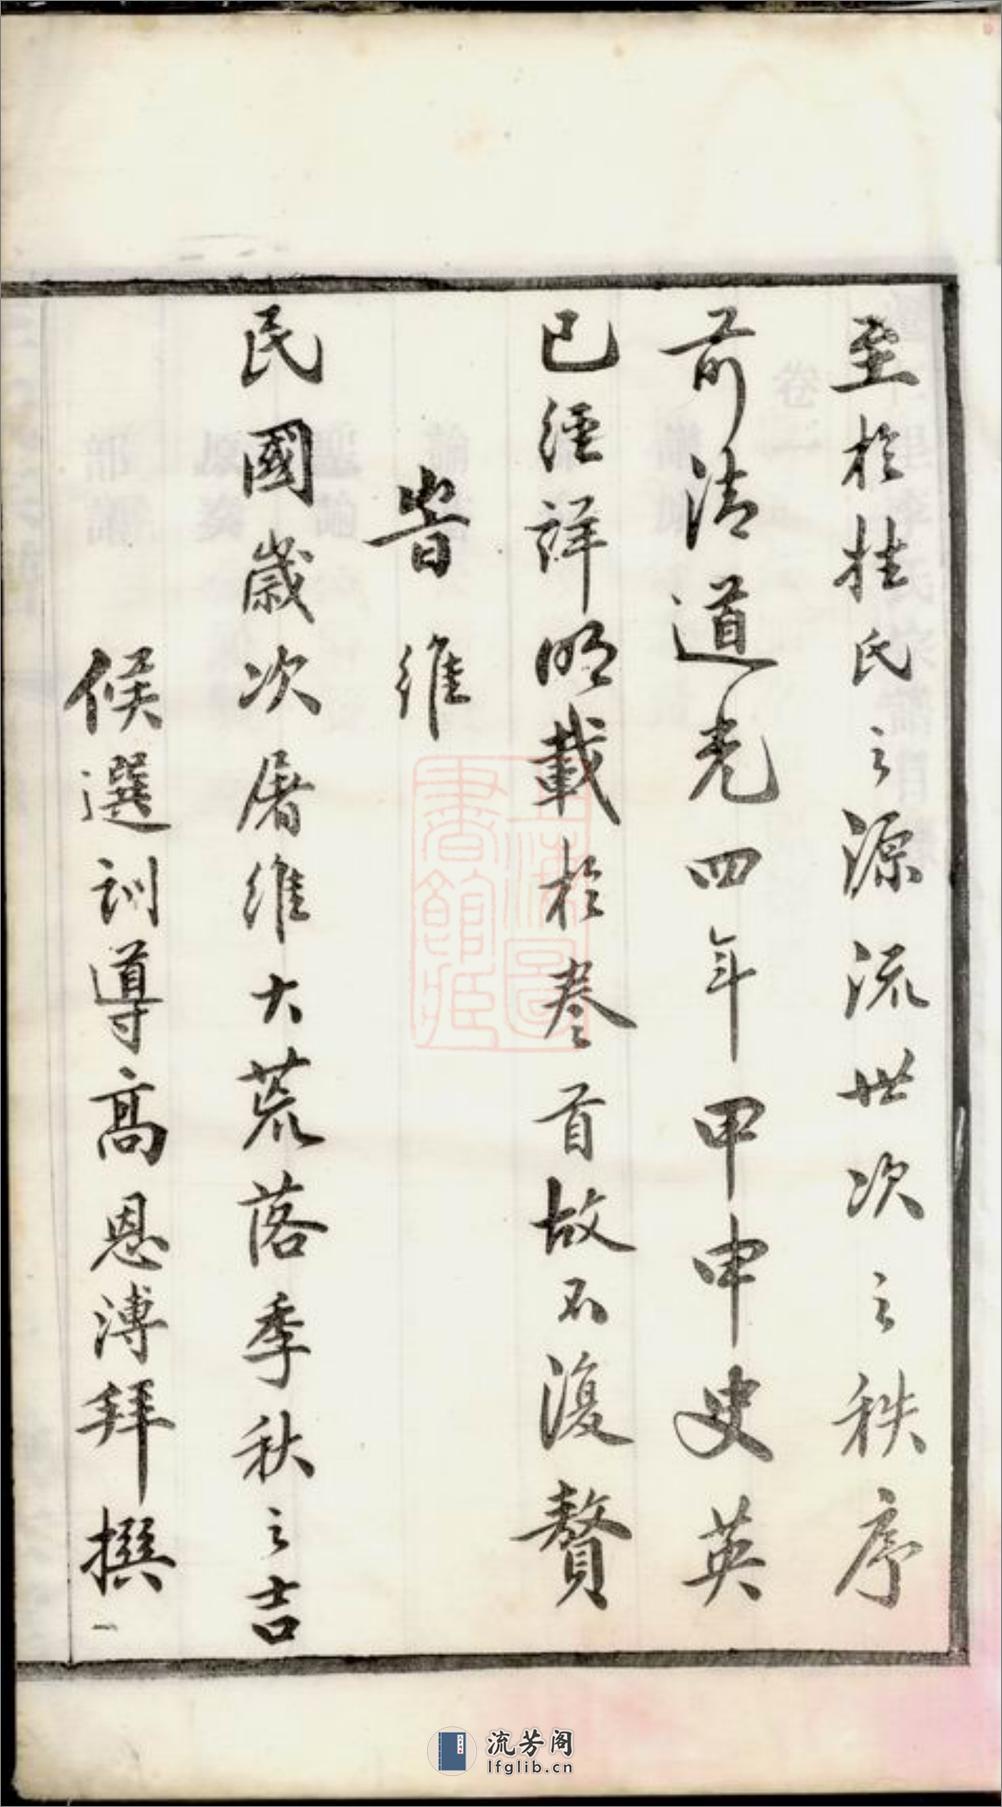 至於桂氏之源流世次之秩序
前清道光四年甲申史英
已經詳明載於卷首故不復贅
旹維
民國歲次屠維大荒落季秋之吉
候選訓導高恩溥拜撰
上海圖書館藏
流芳阁
lfglib.cn